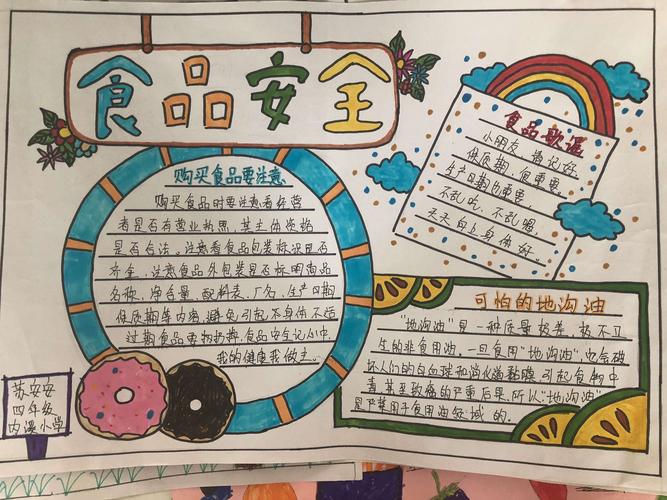 食品安全
购买食品要注意
购买食品时要注意看经营
者是否有营业执照，其主体资格
是否合法。注意看食品包装标识是否
齐全，注意食品外包装是否标明商品
名称、净含量、配料表、厂名、生产日期
保质期等内容避免引起不身体不适
过期食品要扔掉，食品安全记心中，
我的健康我做主。
食品歌谣
小朋友 请记好
保质期、很重要
生产日期也重要
不乱吃、不乱喝
天天向上身体好。
可怕的地沟油
"地沟油"是一种质量极差、极不卫
生的非食用油，一旦食用"地沟油"，它会破
坏人们的白血球和消化道黏膜，引起食物中
毒，甚至致癌的严重后果，所以"地沟油"
是严禁用于食用油领域的。
苏安安
四年级
内溪小学